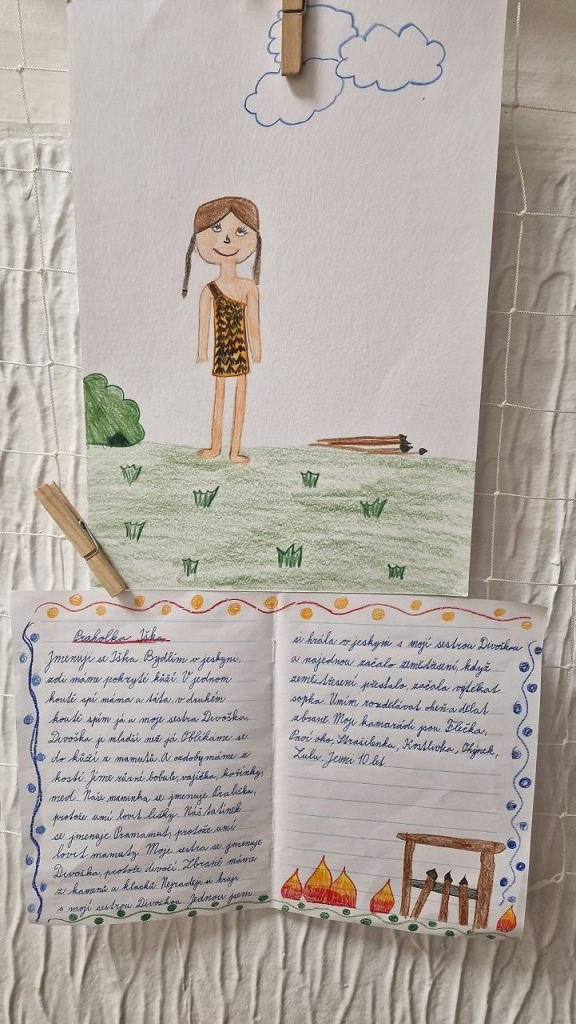 Praholka Iška
Jmenuji se Iška. Bydlím v jeskyni,
zdi máme pokryté kůží. V jednom
koutě spí máma a táta, v druhém
koutě spím já a moje sestra Divoška.
Divoška je mladší než já. Oblékáme se
do kůží z mamutů. A ozdoby máme z
kostí. Jíme různé bobule, vajíčka, kořínky,
med. Naše maminka se jmenuje Prališka,
protože umí lovit lišky. Náš tatínek
se jmenuje Pramamut, protože umí
lovit mamuty. Moje sestra se jmenuje
Divoška, protože divočí. Zbraně máme
z kamenů a klacků. Nejraději si hraje
s mojí sestrou Divoškou. Jednou jsem
si hrála v jeskyni s mojí sestrou Divoškou
a najednou začalo zemětřesení, když
zemětřesení přestalo, začala vytékat
sopka. Umím rozdělávat oheň a dělat
zbraně. Moji kamarádi jsou
Paví oko, Strašilenka, Kostlivka,
Lulu. Je mi 10 let.